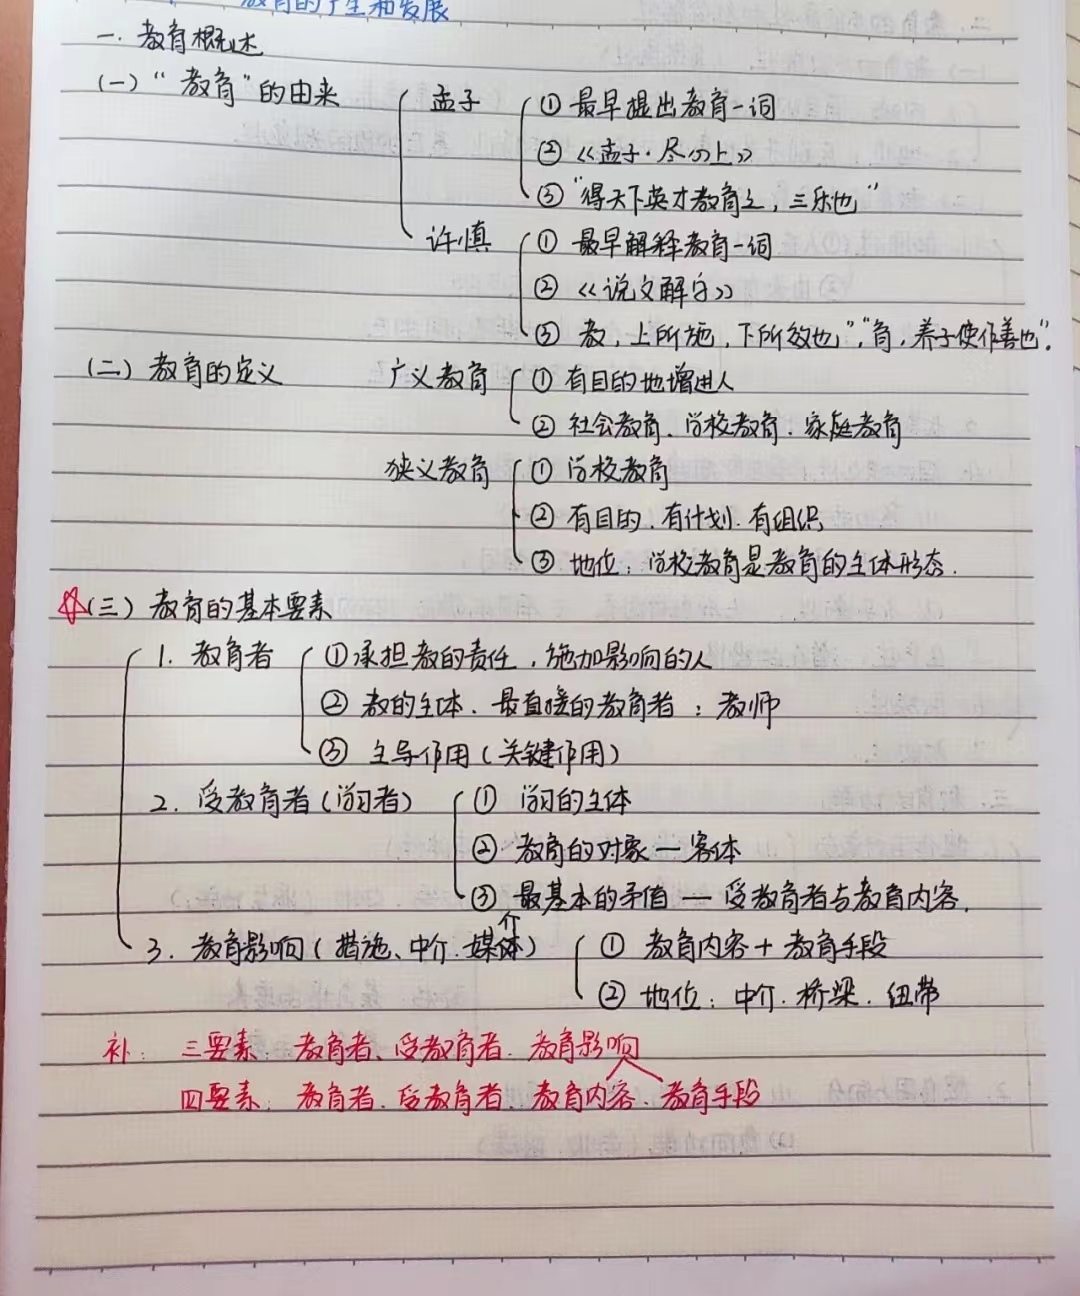 教育的产生和发展
一. 教育概述
(一) “教育”的由来 孟子 ① 最早提出教育一词
② 《孟子·尽心上》
③ “得天下英才教育之, 三乐也”
许慎 ① 最早解释教育一词
② 《说文解字》
③ 教, 上所施, 下所效也”, “育, 养子使作善也”.
(二) 教育的定义 广义教育 ① 有目的地增进人
② 社会教育、学校教育. 家庭教育
狭义教育 ① 学校教育
② 有目的. 有计划. 有组织
③ 地位: 学校教育是教育的主体形态.
☆(三) 教育的基本要素
1. 教育者 ① 承担教的责任, 施加影响的人
② 教的主体. 最直接的教育者: 教师
③ 主导作用 (关键作用)
2. 受教育者 (学习者) ① 学习的主体
② 教育的对象 — 客体
③ 最基本的矛盾 — 受教育者与教育内容.
3. 教育影响 (措施、中介. 媒介体) ① 教育内容 + 教育手段
② 地位: 中介. 桥梁. 纽带
补: 三要素: 教育者、受教育者. 教育影响
四要素: 教育者. 受教育者. 教育内容. 教育手段